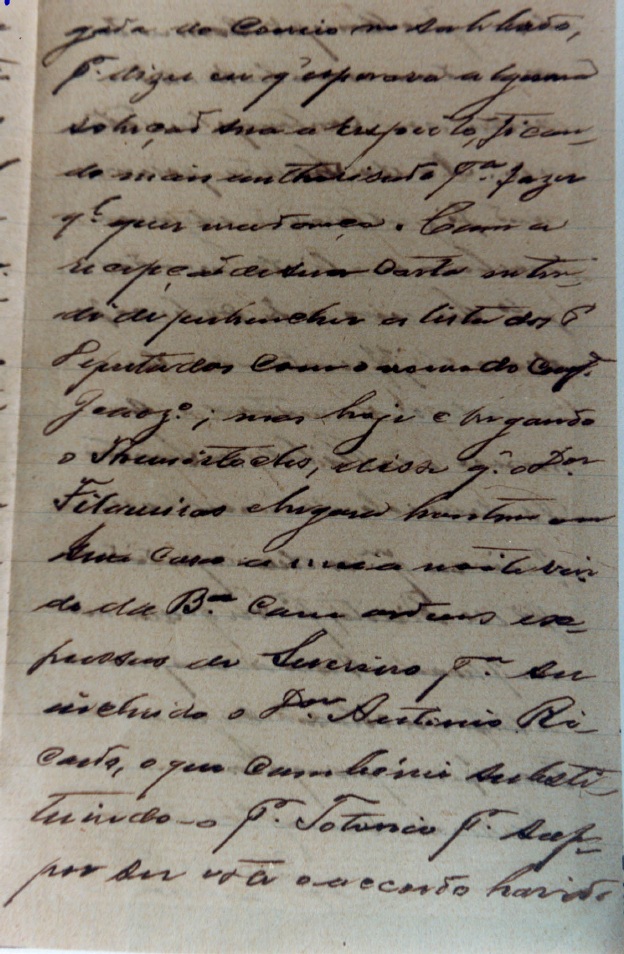 gada do Correio no sabbado,
p.ª dizer eu q' esperava alguma
solução sua a respeito, fican-
do mais authorisado p.ª fazer
q.l quer mudança. Com a
recepção de sua Carta enten-
di de prehencher a lista dos
Deputados com o nome do
; mas hoje chegando
o Themistocles, disse q.' o Dor
Filgueiras chegara hontem em
sua casa a meia noite vin-
do da B.ª com ordens ex-
pressas de Severino p.ª ser
incluido o Dor Antonio Ri-
cardo, o que combinei substi-
tuindo-o p.r Totonio p.r sup-
por ser este o accordo havido